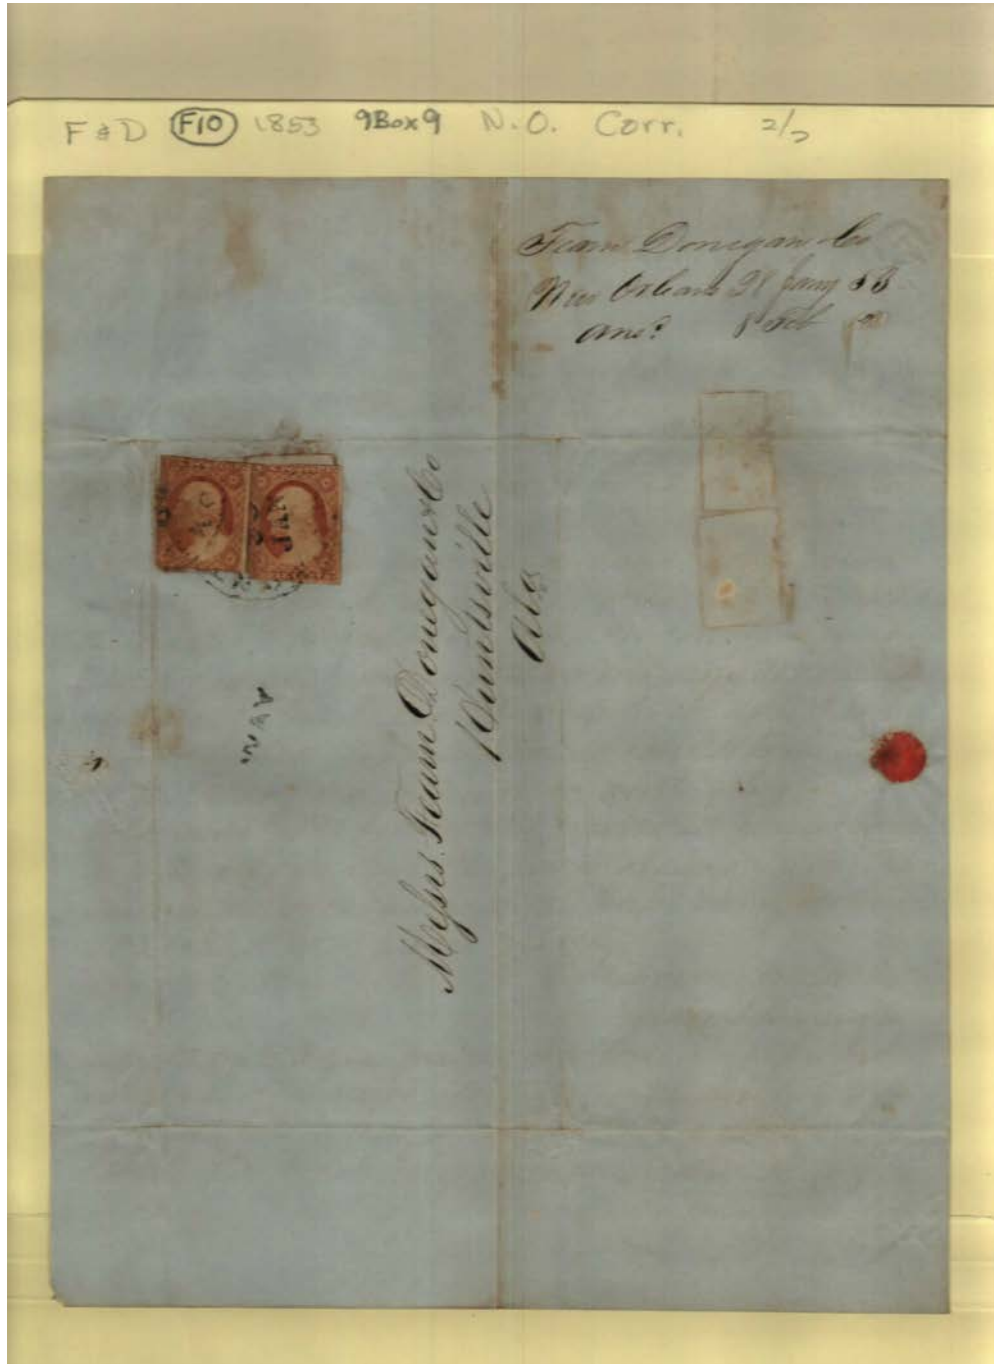 F & D F10 1853 9Box9 N.O. Corr. 2/2
Fearn Donegan & Co
New Orleans 28 Jany 53
Ans.d 8 Feb
JAN
Messrs. Fearn Donegan & Co
Huntsville
Ala